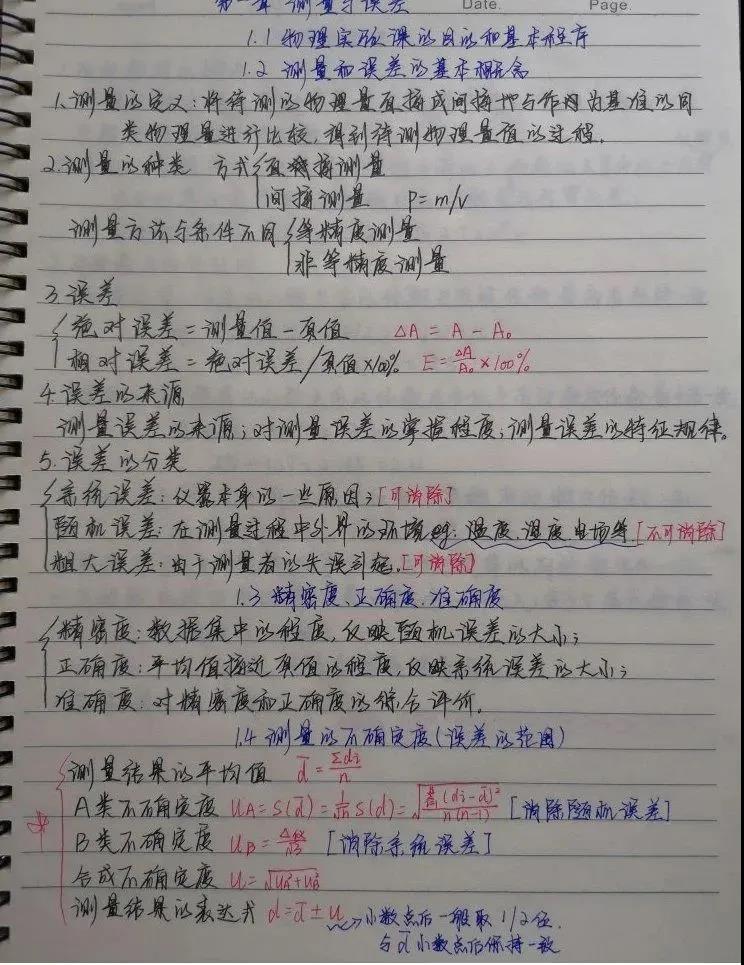 第一章 测量与误差 Date. Page.
1.1 物理实验课的目的和基本程序
1.2 测量和误差的基本概念
1.测量的定义:将待测的物理量直接或间接地与作为基准的同
类物理量进行比较,得到待测物理量值的过程.
2.测量的种类 方式 直接测量
间接测量 ρ=m/v
测量方法与条件不同 等精度测量
非等精度测量
3.误差
绝对误差=测量值-真值 ΔA = A - A₀
相对误差=绝对误差/真值×100% E=ΔA/A₀×100%
4.误差的来源
测量误差的来源;对测量误差的掌握程度;测量误差的特征规律。
5.误差的分类
系统误差:仪器本身的一些原因;[可消除]
随机误差:在测量过程中外界的环境eg:温度、湿度、电场等[不可消除]
粗大误差:由于测量者的失误引起.[可消除]
1.3 精密度、正确度、准确度
精密度:数据集中的程度,仅映随机误差的大小;
正确度:平均值接近真值的程度,仅映系统误差的大小;
准确度:对精密度和正确度的综合评价。
1.4 测量的不确定度(误差的范围)
测量结果的平均值 d̅=Σdi/n
A类不确定度 u_A=S(d̅)=1/√n S(d)=√(Σ(di-d̅)²/n(n-1)) [消除随机误差]
B类不确定度 u_B=Δ仪/√3 [消除系统误差]
合成不确定度 u=√(u_A²+u_B²)
测量结果的表达式 d=d̅±u 小数点后一般取1/2位.
与d̅小数点后保持一致